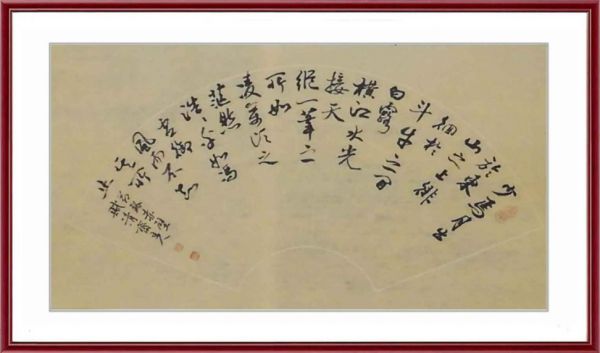 少焉月出
於東
山之上徘
徊於
斗牛之間
白露
橫江水光
接天
縱一葦之
所如
凌萬頃之
茫然
浩浩乎如馮
虛御
風而不知
其所
止
赤壁
賦